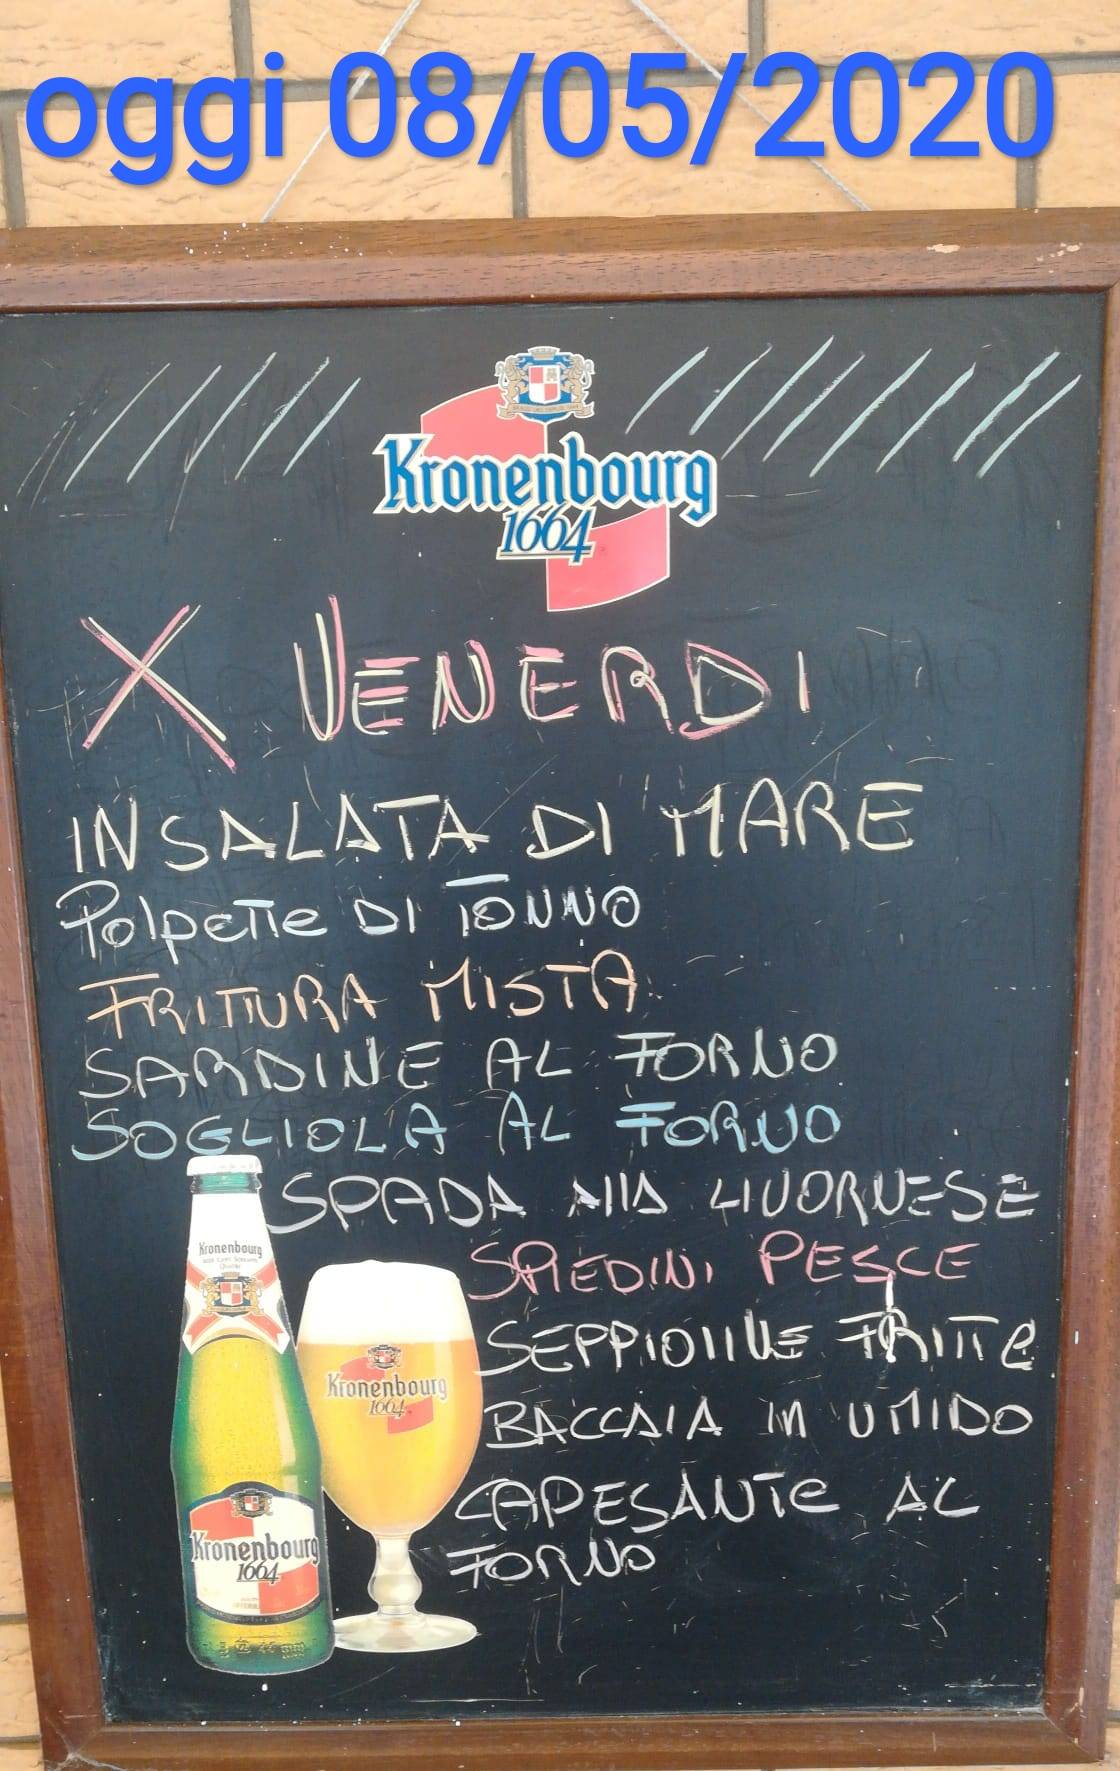 oggi 08/05/2020
Kronenbourg
1664
X VENERDI
INSALATA DI MARE
Polpette DI TONNO
FRITTURA MISTA
SARDINE AL FORNO
SOGLIOLA AL FORNO
SPADA AllA LIVORNESE
SPIEDINI PESCE
FRITTe
BACCALA IN UMIDO
CAPESANTe AL
FORNO
Kronenbourg
Kronenbourg
1664
Kronenbourg
1664